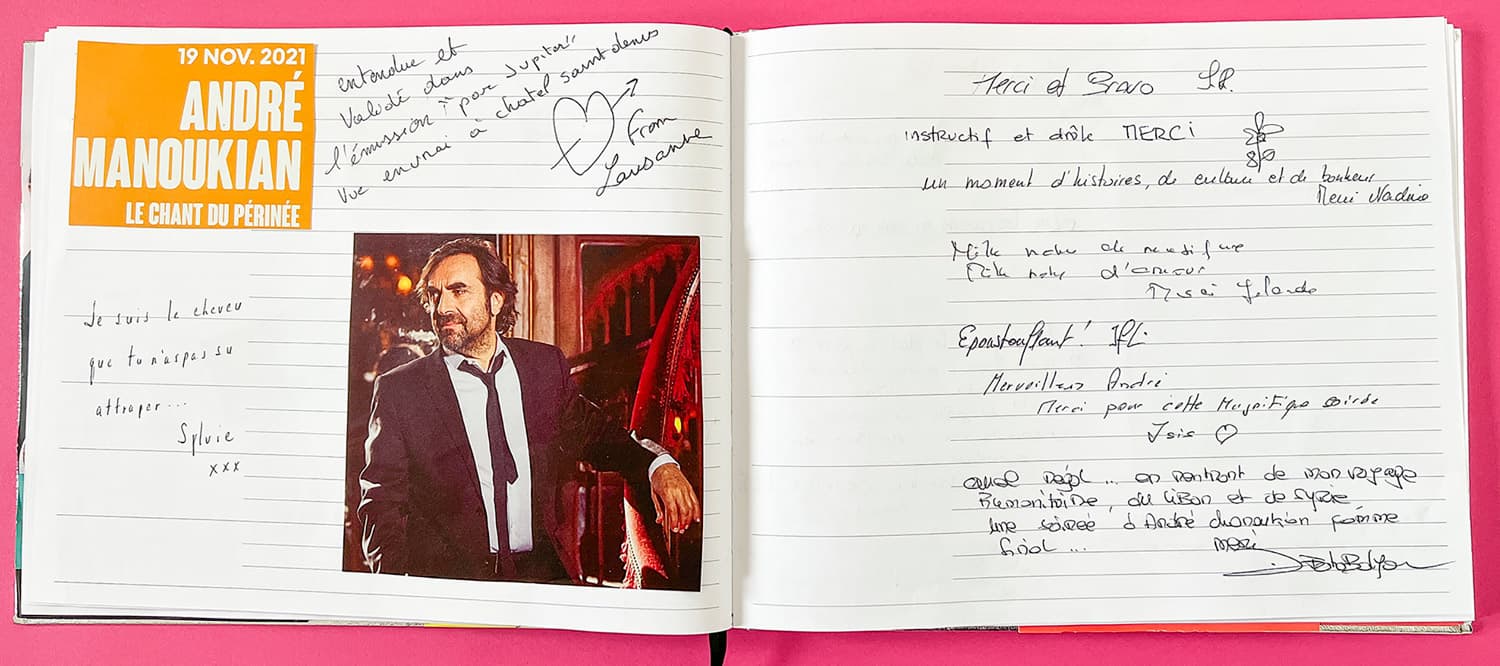 19 NOV. 2021
ANDRÉ
MANOUKIAN
LE CHANT DU PÉRINÉE
entendue et
validé dans
l'émission "par Jupiter"
vue en vrai à chatel saint denis
From
Lausanne
Je suis le cheveu
que tu n'as pas su
attraper...
Sylvie
xxx
Merci et Bravo
instructif et drôle MERCI
un moment d'histoires, de culture et de bonheur
Merci Nadine
d'amour
Merci Yolande
Epoustouflant!
Merveilleux André
Merci pour cette Magnifique soirée
Isis
quel régal... en rentrant de mon voyage
Humanitaire, du Liban et de Syrie
une soirée d'André Manoukian comme
final...
merci